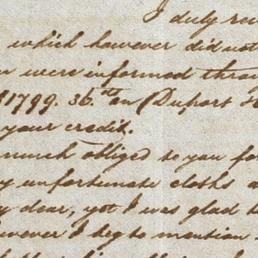 I duly rec
which however did not
were informed throu
1799. 36 on Duport
your credit.
much obliged to you fo
unfortunate cloths a
dear, yet I was glad t
however I beg to mention